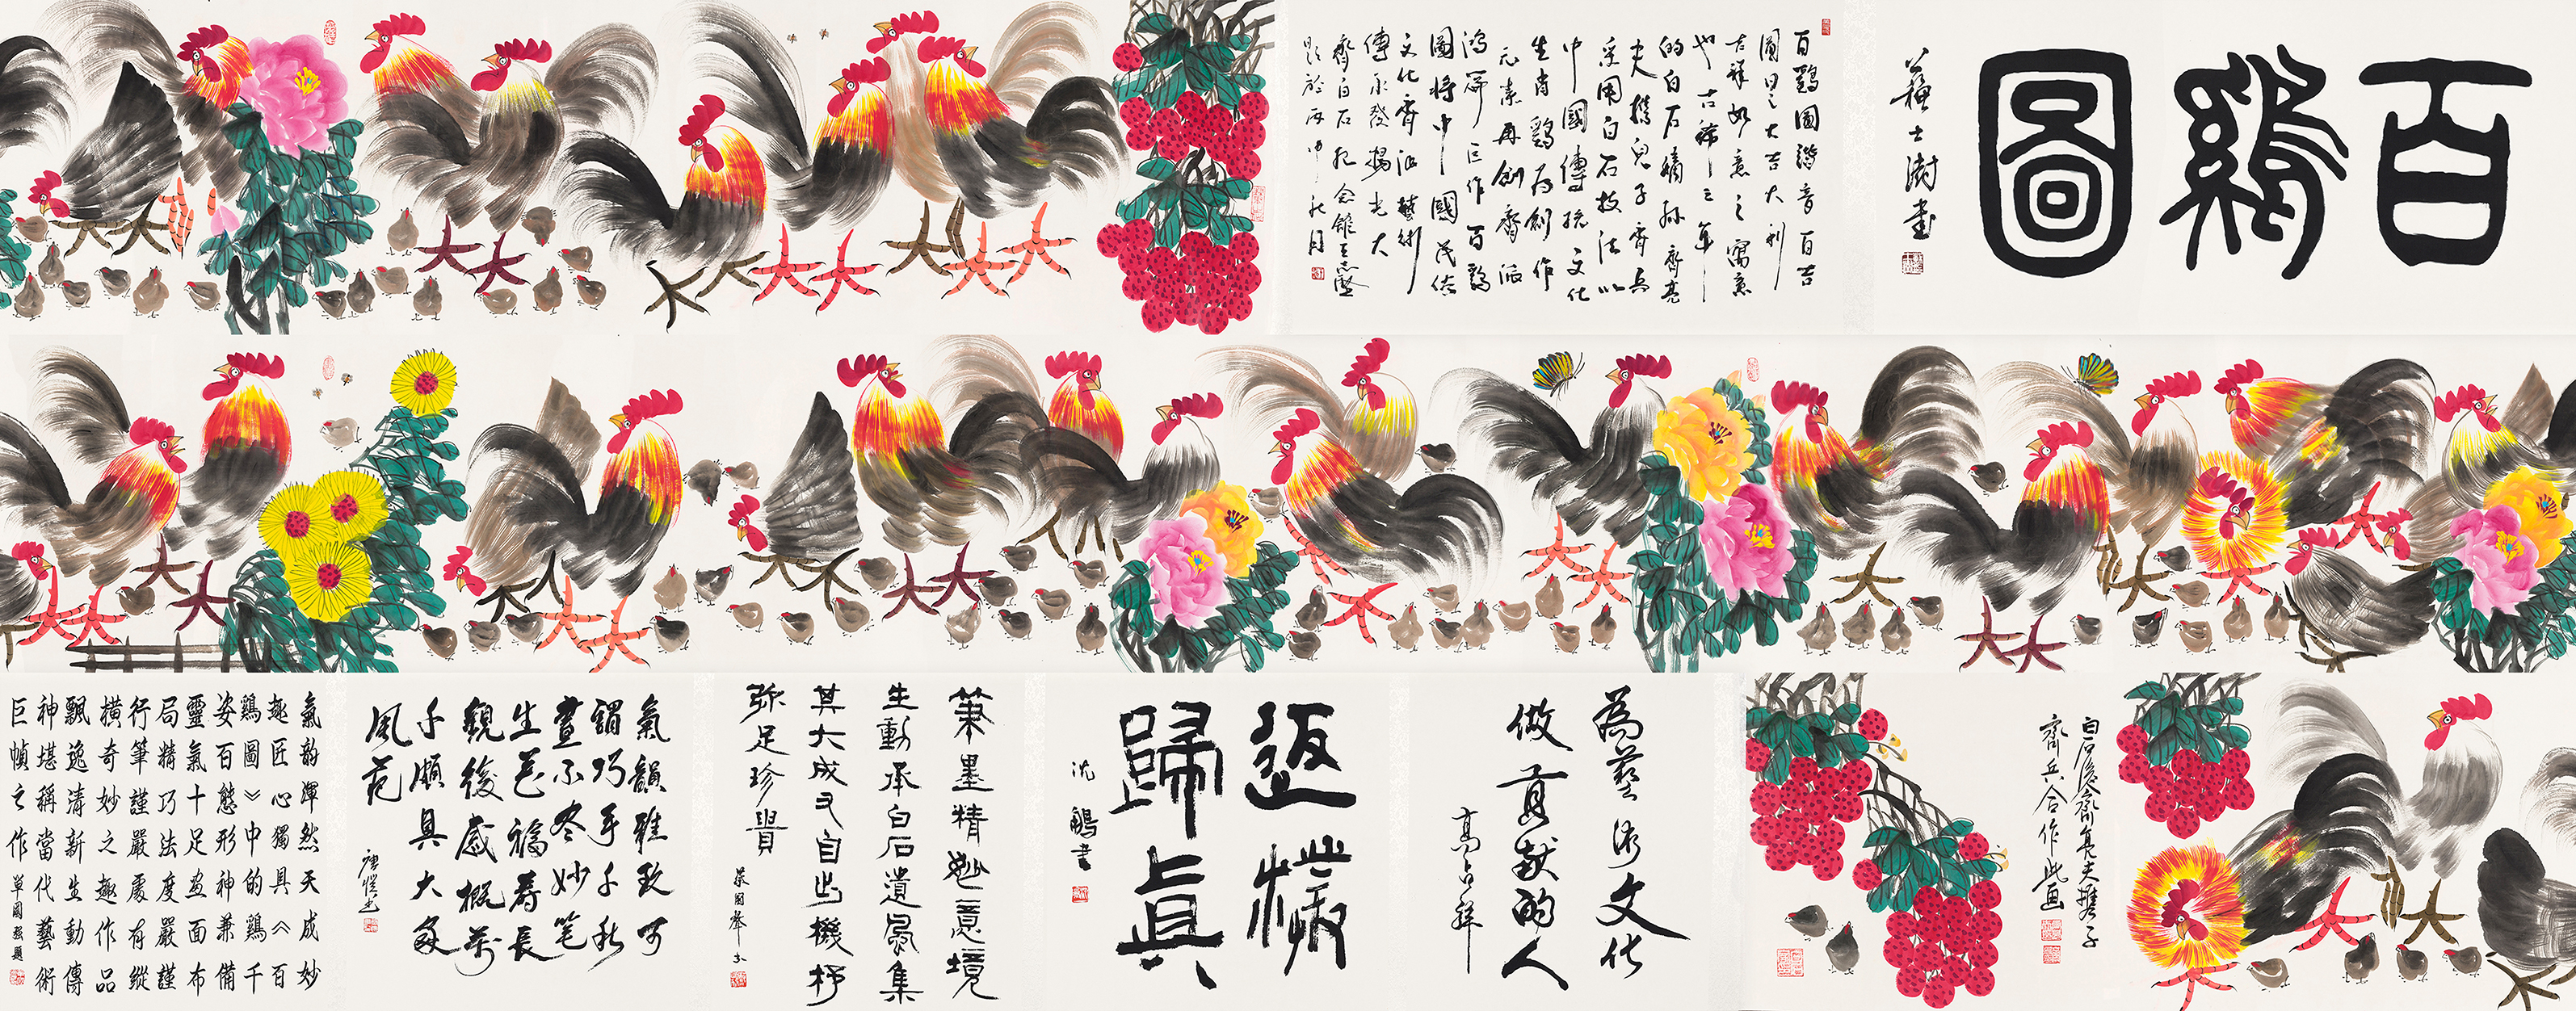 百鷄圖
蘇士澍書
百鷄圖諧音百吉
圖曰之大吉大利
吉祥如意之寓意
也古稀之年
的白石嫡孫齊亮
夫携兒子齊兵
采用白石技法以
中國傳統文化
生肖鷄为創作
元素再創齊派
鸿篇巨作百鷄
圖将中國民俗
文化齊派藝術
傳承發揚光大
齊白石紀念館王志堅
題於丙申秋月
白石後裔齊良夫攜子
齊兵合作此画
為藝術文化
做貢献的人
高占祥
返樸
歸真
沈鵬書
筆墨精妙意境
生動承白石遺風集
其大成又自出機杼
弥足珍貴
氣韻雅致可
謂巧手千秋
畫不冬妙笔
生花福壽長
觀後感概萬
千頗具大家
風范
唐愷書
氣韵渾然天成妙
趣匠心獨具《百
鷄圖》中的鷄千
姿百態形神兼備
靈氣十足画面布
局精巧法度嚴謹
行筆謹嚴處有縱
横奇妙之趣作品
飄逸清新生動傳
神堪稱當代藝術
巨幀之作單國强題